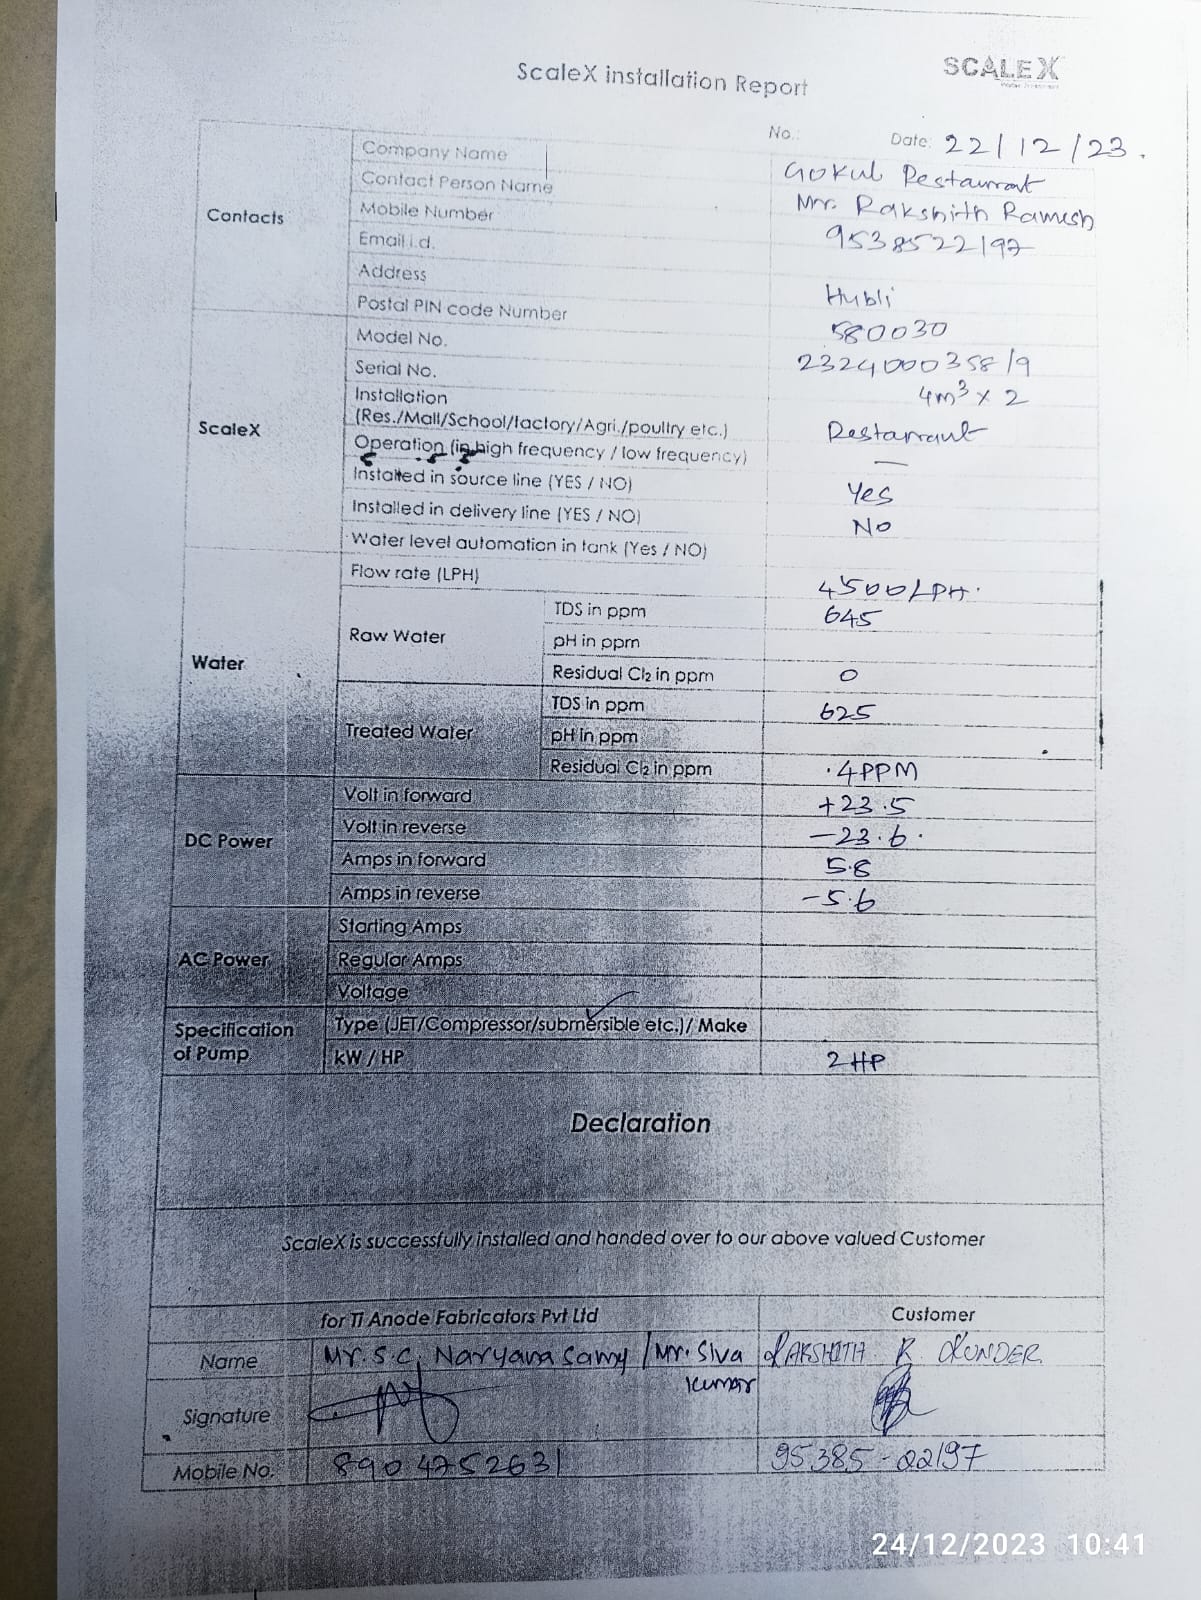 ScaleX installation Report
SCALEX
Water Treatment
No.:
Date: 22/12/23.
Contacts
Company Name Gokul Restaurant
Contact Person Name Mr. Rakshith Ramesh
Mobile Number 9538522197
Email i.d.
Address Hubli
Postal PIN code Number 580030
ScaleX
Model No. 2324000358/9
Serial No. 4m³ x 2
Installation
(Res./Mall/School/factory/Agri./poultry etc.) Restaurant
Operation (in high frequency / low frequency) —
Installed in source line (YES / NO) Yes
Installed in delivery line (YES / NO) No
Water level automation in tank (Yes / NO)
Water
Flow rate (LPH) 4500 LPH.
Raw Water
TDS in ppm 645
pH in ppm
Residual Cl2 in ppm 0
Treated Water
TDS in ppm 625
pH in ppm
Residual Cl2 in ppm .4PPM
DC Power
Volt in forward +23.5
Volt in reverse -23.6.
Amps in forward 5.8
Amps in reverse -5.6
AC Power
Starting Amps
Regular Amps
Voltage
Specification
of Pump
Type (JET/Compressor/submersible etc.)/ Make
kW / HP 2 HP
Declaration
ScaleX is successfully installed and handed over to our above valued Customer
for Ti Anode Fabricators Pvt Ltd Customer
Name Mr. S.C. Naryana Samy / Mr. Siva Kumar RAKSHITH R KUNDER
Signature
Mobile No. 8904752631 95385-22197
24/12/2023 10:41